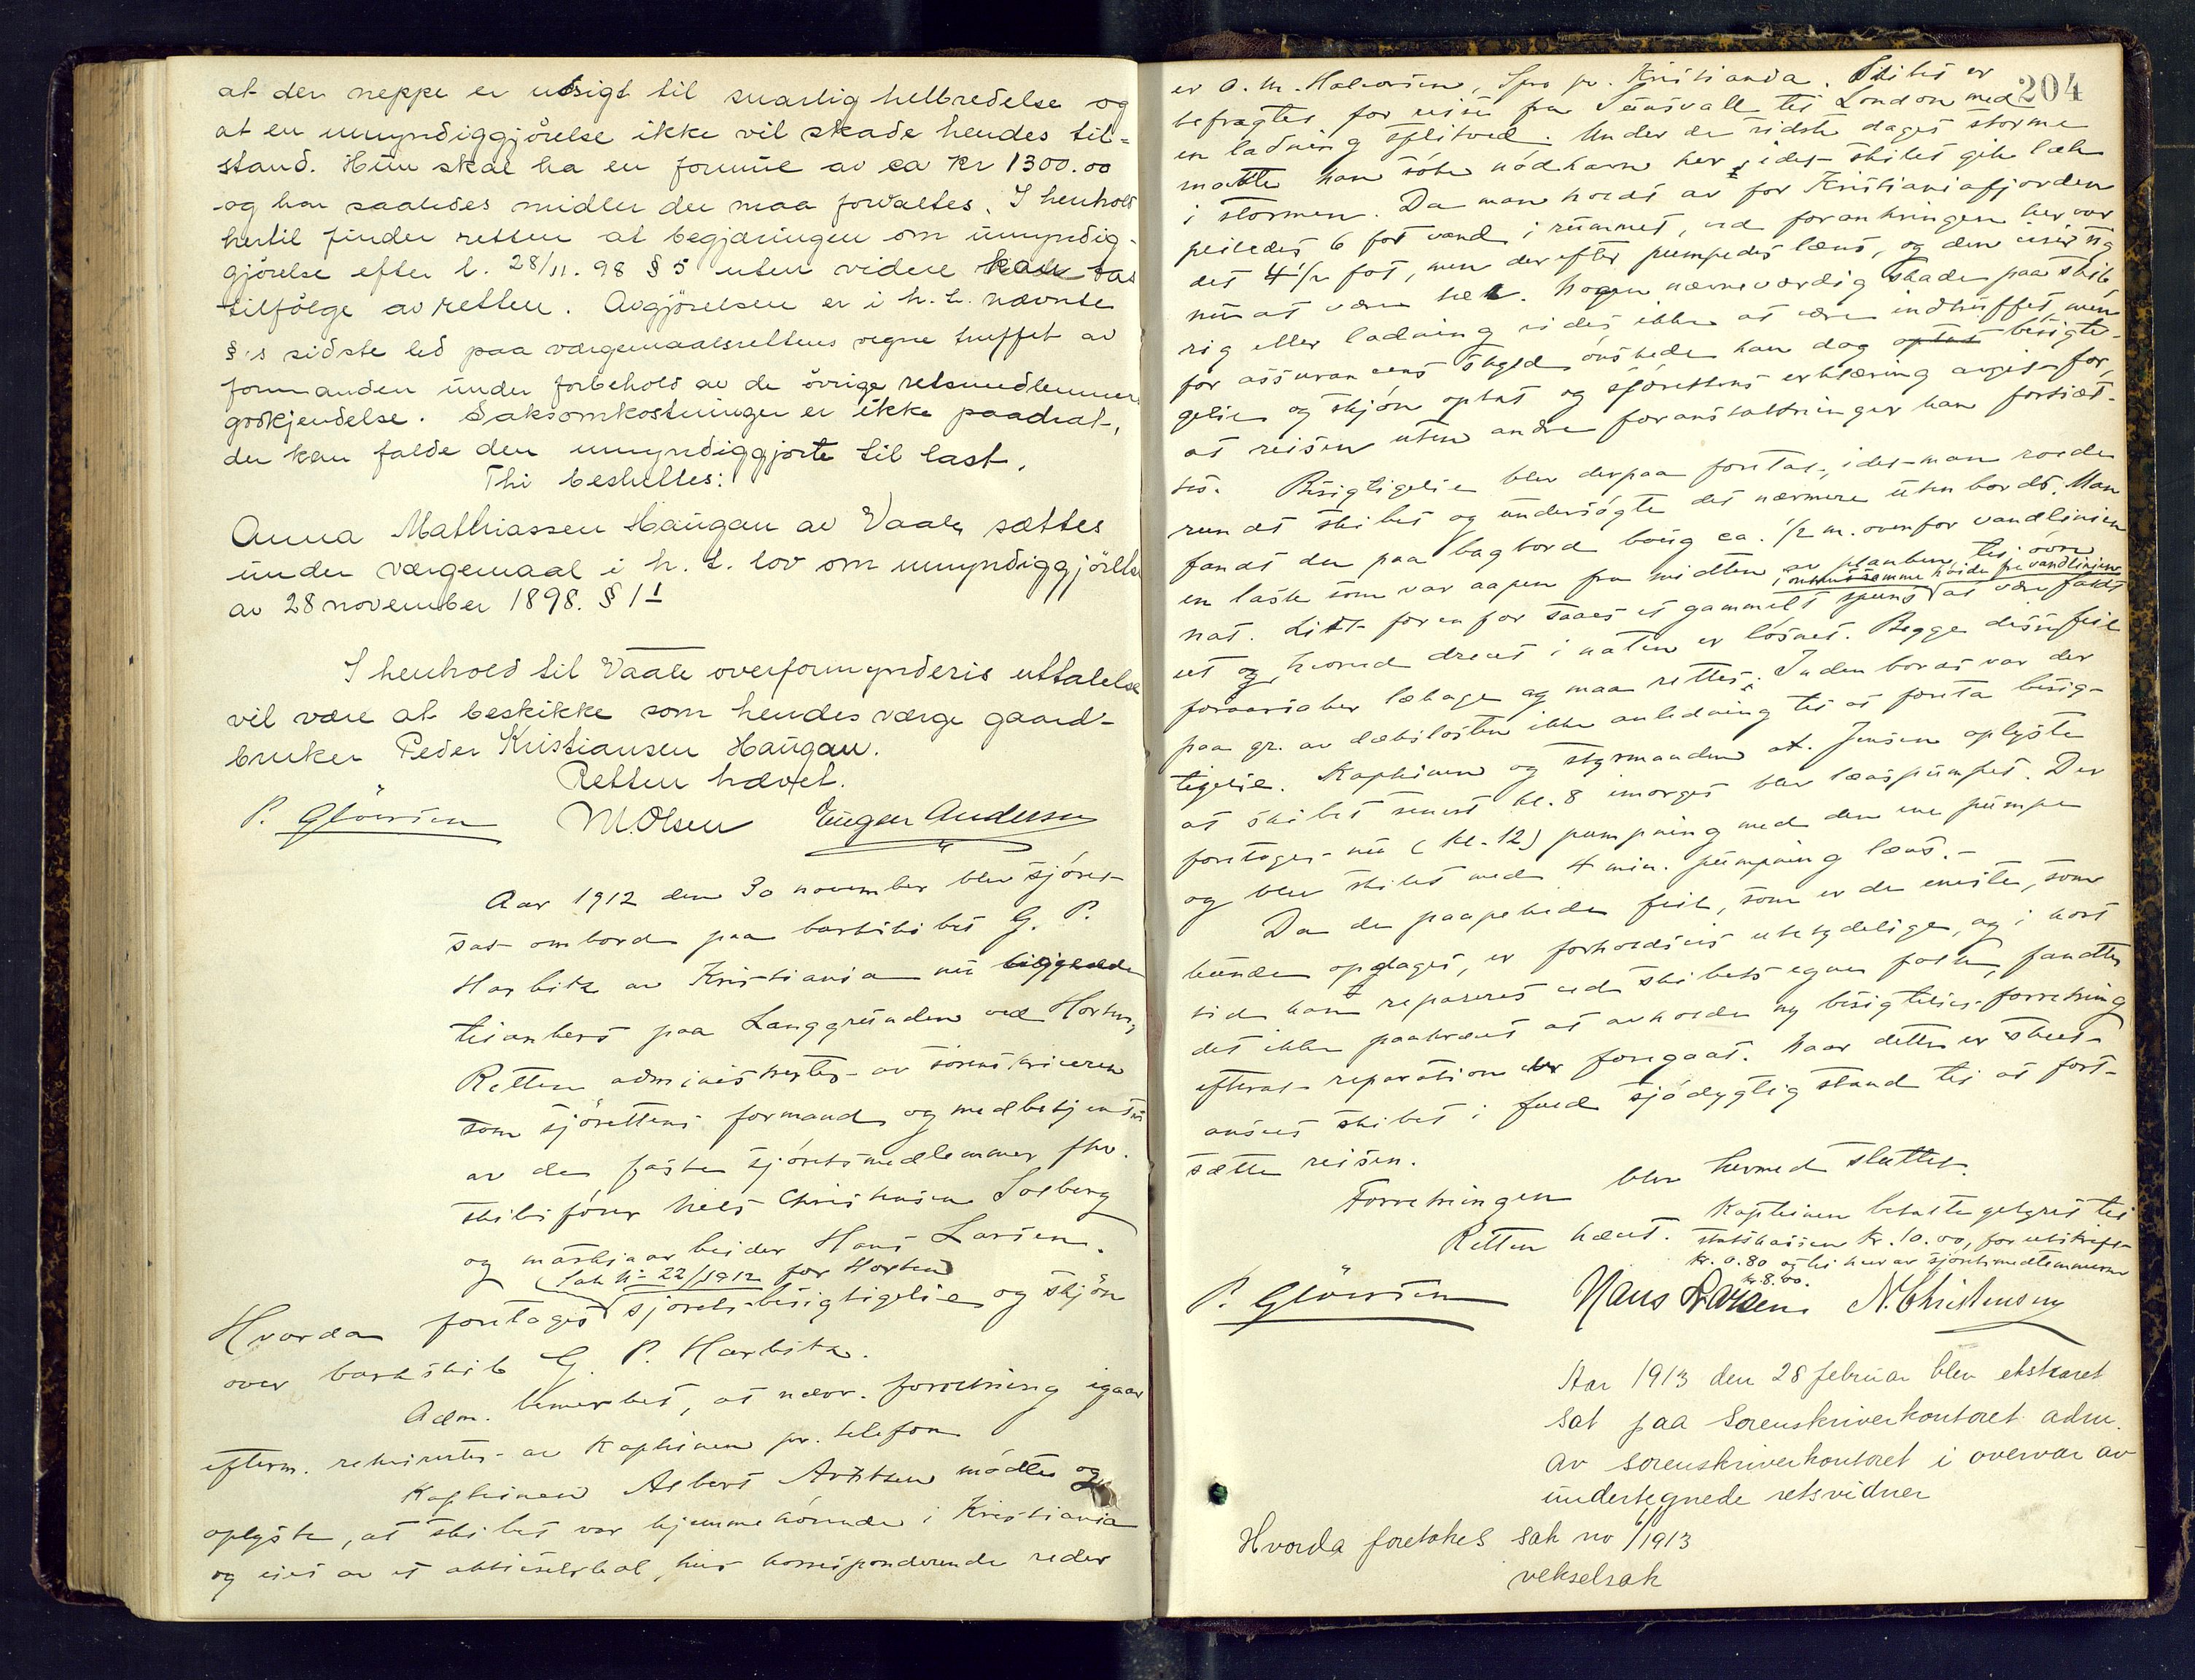 at der neppe er utsigt til snarlig helbredelse og
at en umyndiggjørelse ikke vil skade hendes til-
stand. Hun skal ha en formue av ca kr 1300.00
og har saaledes midler der maa forvaltes. I henhold
hertil finder retten at begjæringen om umyndig-
gjørelse efter l. 28/11. 98 § 5 uten videre kan tas
tilfölge av retten. Avgjörelsen er i h. t. nævnte
§'s sidste led paa værgemaalsrettens vegne truffet av
formanden under forbehold av de övrige retsmedlemmers
godkjendelse. Saksomkostninger er ikke paadrat,
der kan falde den umyndiggjorte til last.
Thi besluttes:
Anna Mathiassen Haugan av Vaale sættes
under værgemaal i h. t. lov om umyndiggjörelse
av 28 november 1898. § 1 1
I henhold til Vaale overformynderis uttalelse
vil være at beskikke som hendes værge gaard-
bruker Peder Kristiansen Haugan.
Retten hævet.
P. Glöersen M Olsen Eugen Andersen
Aar 1912 den 30 november blev sjöret
sat ombord paa barkskibet G. P.
Harbitz av Kristiania nu liggende
tilankers paa Langgrunden ved Horten,
Retten administrertes av sorenskriveren
som sjörettens formand og med betjente
av de faste sjöretsmedlemmer fhv.
skibsförer Niels Christensen Solberg
og maskinarbeider Hans Larsen.
(Sak No 22/1912 for Horten)
Hvorda foretoges sjörets-besigtigelse og skjön
over barkskib G. P. Harbitz.
Adm. bemerket, at nærv. forretning igaar
efterm. rekvirertes av kapteinen pr. telefon
Kapteinen Albert Arntsen mödte og
oplyste, at skibet var hjemmehörende i Kristiania
og eies av et aktieselskab, hvis korresponderende reder
204
er O. M. Halvorsen, Spro pr. Kristiania. Skibet er
befragtet for reise fra Sundsvall til London med
en ladning splitved. Under de sidste dages storme
maatte han söke nödhavn her, idet skibet gik læk
i stormen. Da man holdt av for Kristianiafjorden
peiledes 6 fot vand i rummet, ved forankringen her var
det 4 1/2 fot, men derefter pumpedes læns, og den viser sig
nu at være tæt. Nogen nævneværdig skade paa skib,
rig eller ladning vides ikke at være indtruffet, men
for assurancens skyld önskede han dog optat besigti-
gelse og skjön optat og sjörettens erklæring avgit for,
at reisen uten andre foranstaltninger kan fortsæt-
tes. Besigtigelse blev derpaa foretat, idet man roede
rundt skibet og undersögte det nærmere utenbords. Man
fandt der paa bagbord boug ca. 1/2 m. ovenfor vandlinien
en lask som var aapen fra midten av planken til övre
nat. Litt forenfor saaes et gammelt spuns i omtrent samme höide fra vandlinien at være faldt
ut og hvorved drevet i naten er lösnet. Begge disse feil
foraarsaker lækage og maa rettes. Indenbords var der
paa gr. av dækslasten ikke anledning til at foreta besig-
tigelse. Kapteinen og styrmanden A. Jensen oplyste
at skibet senest kl. 8 imorges blev lænspumpet. Der
foretoges nu (kl. 12) pumpning med den ene pumpe
og blev skibet med 4 min. pumpning læns.-
Da de paapekede feil, som er de eneste, som
kunde opdages, er forholdsvis ubetydelige, og i kort
tid kan repareres ved skibets egne folk, fandtes
det ikke paakrævet at avholde ny besigtelses-forretning
efterat reparation er foregaat. Naar dette er skeet
ansees skibet i fuld sjödygtig stand til at fort-
sætte reisen.
Forretningen blev hermed sluttet.
Retten hævet. Kapteinen betalte gebyret til
statskassen kr. 10.00, for utskrift
kr. 0.80 og til hver av sjöretsmedlemmerne
kr. 8.00.
P. Glöersen Hans Larsen N. Christensen
Aar 1913 den 28 februar blev ekstraret
sat paa Sorenskriverkontoret adm.
av sorenskriverkontoret i overvær av
undertegnede retsvidner
Hvorda foretokes sak no 1/1913
vekselsak